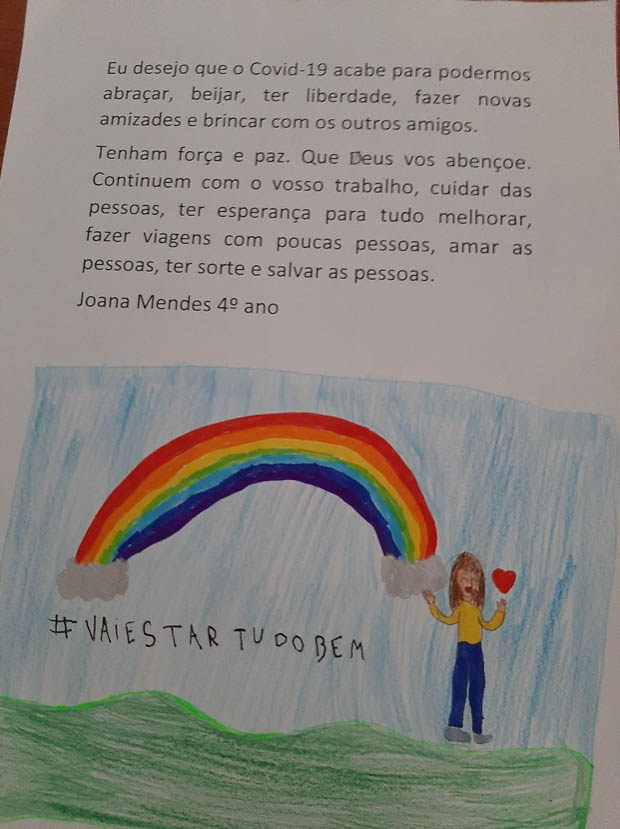 Eu desejo que o Covid-19 acabe para podermos
abraçar, beijar, ter liberdade, fazer novas
amizades e brincar com os outros amigos.
Tenham força e paz. Que Deus vos abençoe.
Continuem com o vosso trabalho, cuidar das
pessoas, ter esperança para tudo melhorar,
fazer viagens com poucas pessoas, amar as
pessoas, ter sorte e salvar as pessoas.
Joana Mendes 4º ano
#VAIESTAR TUDOBEM